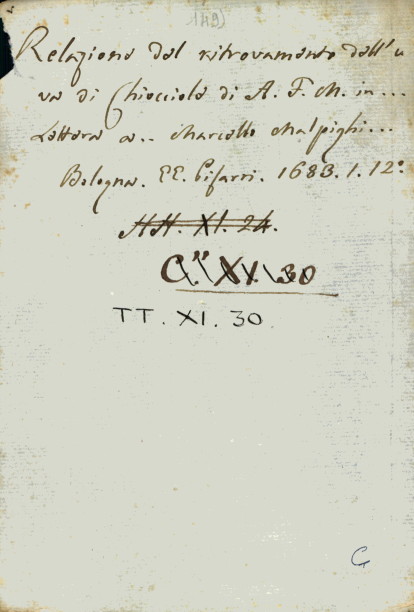 149)
Relazione del ritrovamento dell'u
va di Chiocciole di A. F. M. in...
Lettera a.. Marcello Malpighi...
Bologna. EE. Pisarri. 1683. 1. 12°
HH. XI. 24.
C." XV. 30
TT. XI. 30
C